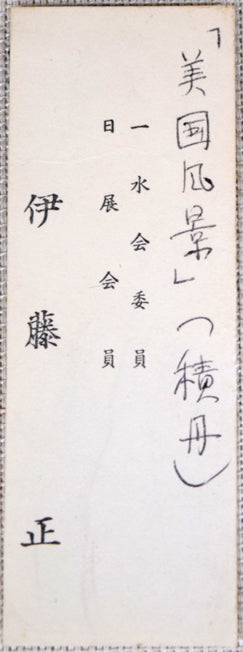 「美国風景」(積丹)
一水会委員
日展会員
伊藤正